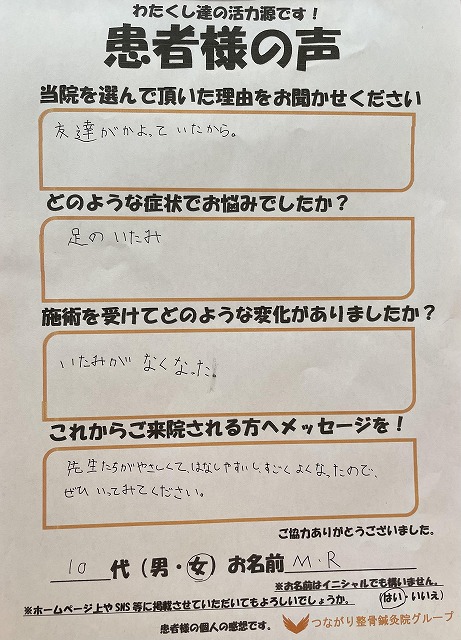 わたくし達の活力源です！
患者様の声
当院を選んで頂いた理由をお聞かせください
友達がかよっていたから。
どのような症状でお悩みでしたか？
足のいたみ
施術を受けてどのような変化がありましたか？
いたみがなくなった。
これからご来院される方へメッセージを！
先生たちがやさしくて、はなしやすいし、すごくよくなったので、
ぜひいってみてください。
ご協力ありがとうございました。
10代（男・女）お名前 M・R
※お名前はイニシャルでも構いません。
※ホームページ上やSNS等に掲載させていただいてもよろしいでしょうか。（はい・いいえ）
患者様の個人の感想です。 つながり整骨鍼灸院グループ